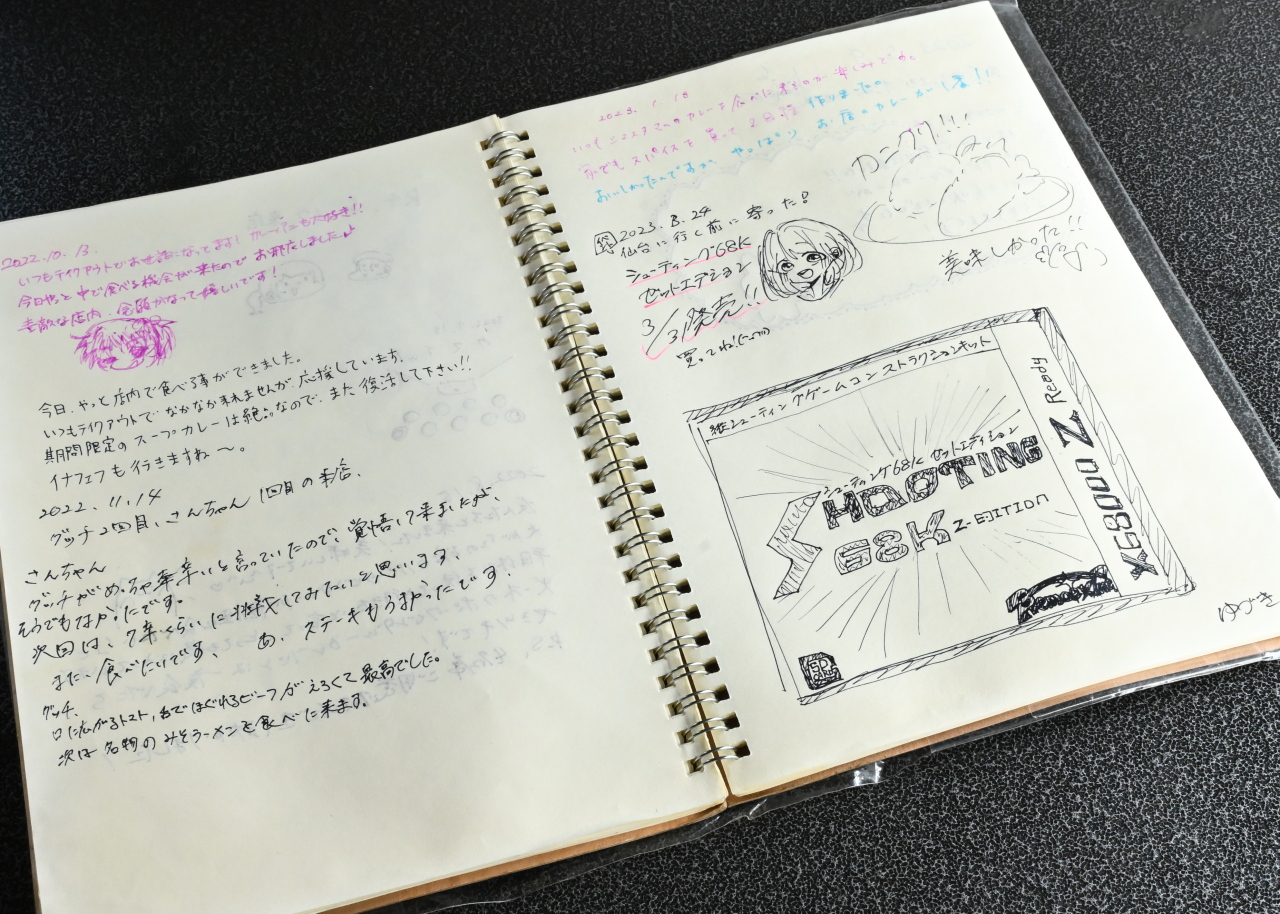 2022.10.13
いつもテイクアウトでお世話になってます! カレーパンも大好き!!
今日やっと中で食べる機会が来たのでお邪魔しました♪
素敵な店内、念願かなって嬉しいです!
今日、やっと店内で食べる事ができました。
いつもテイクアウトでなかなか来れませんが応援しています。
期間限定のスープカレーは絶品なので、また復活して下さい!!
イナフェフも行きますね〜。
2022.11.14
グッチ2回目、さんちゃん1回目の来店、
さんちゃん
グッチがめっちゃ辛辛いと言っていたので、覚悟して来ましたが、
そうでもなかったです。
次回は、7辛くらいに挑戦してみたいと思います
また、食べたいです、 あ、ステーキもうまかったです。
グッチ、
口に広がるトマト、舌でほぐれるビーフがえろくて最高でした。
次は名物のみそラーメンを食べに来ます。
2023.1.18
カレーを食べに来るのが楽しみです。
スパイスを買って 作りましたの
おいしかったんですが、やっぱり お店のカレーが1番!!
2023.8.24
仙台に行く前に寄った!
シューティング68K
ゼットエディション
3/3発売!!
買ってね!
美味しかった!!
紙シューティングゲームコンストラクションキット
シューティング68K ゼットエディション
SHOOTING
68K Z-EDITION
X68000 Z Ready
ゆづき